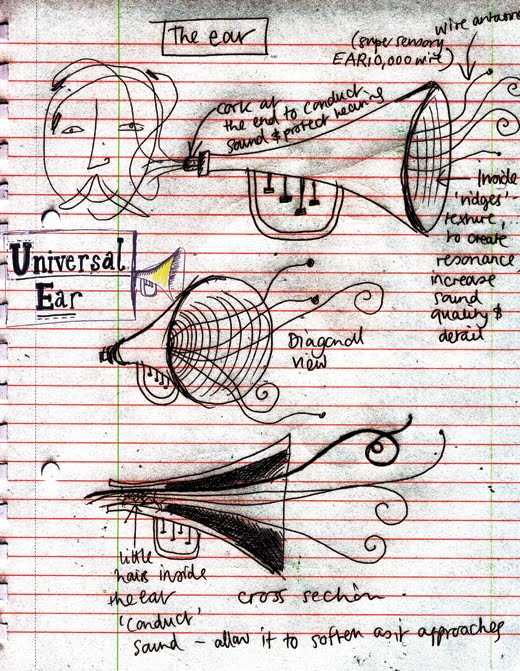 The ear
wire antannae
(super sensory
EAR10,000 wire)
cork at
the end to conduct
sound & protect hearing
Inside
'ridges' -
texture,
to create
resonance
increase
sound
quality &
detail
Universal
Ear
Diagonal
view
little
hairs inside
the ear
'conduct'
sound - allow it to soften as it approaches
cross section.